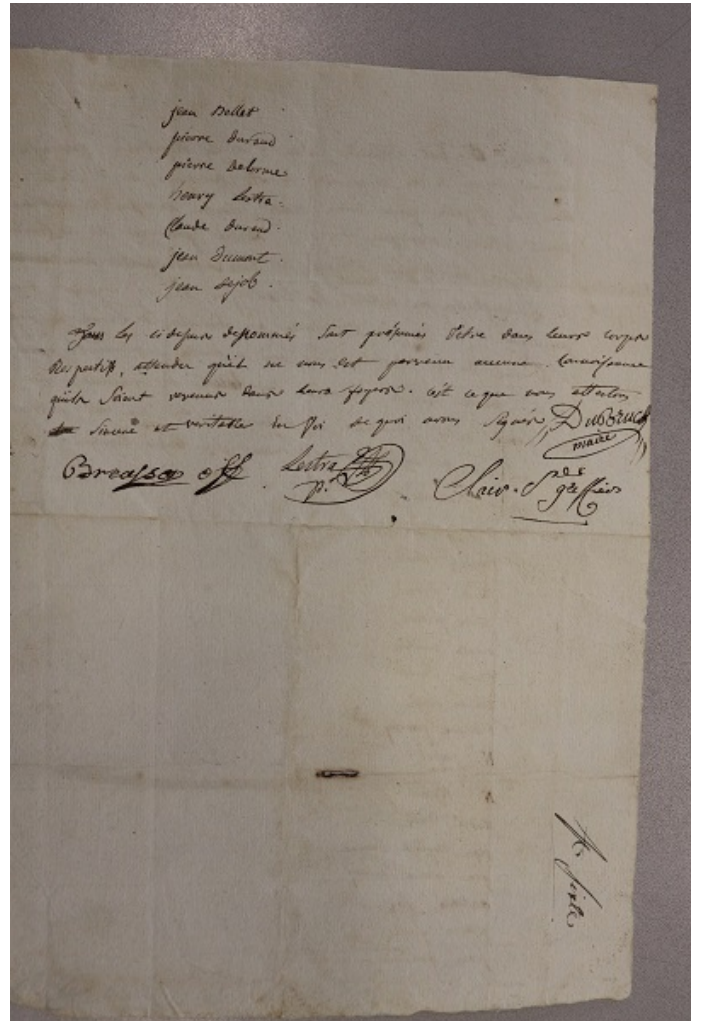 jean Bellet
pierre durand
pierre delorme
henry Lestra
Claude durand
jean Dumont
jean dejob
Tous les cidessus desnommés sont présumés Être dans leurs corps
Respectifs, attender qu'il ne nous est parvenu aucune Connoissance
qu'ils Soient revenus dans leurs foyers. c'est ce que nous attestons
Sincere et veritable En foi de quoi avons Signés, DuBRUCH
maire
Breassa off Lestra
p.r Clair. S.re greffier
St Sixte